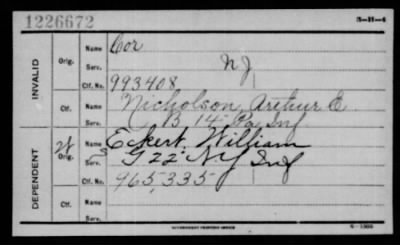 1226672
3-H-4
INVALID
Orig.
Name Cor
Serv. NJ
Ctf. No. 993408
Ctf.
Name Nicholson, Arthur E
Serv. B 14 Pa Inf
DEPENDENT
Orig.
Name Eckert, William
Serv. G 22 NY Inf
Ctf. No. 965,335
Ctf.
Name
Serv.
GOVERNMENT PRINTING OFFICE